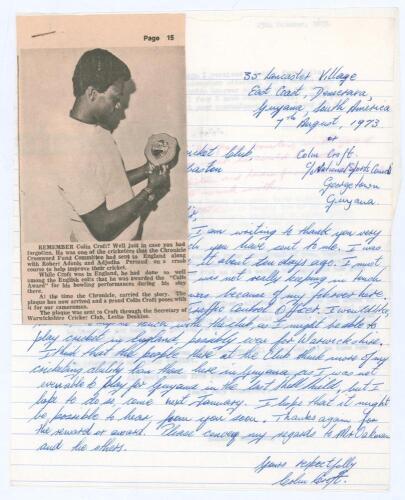 Page 15
REMEMBER Colin Croft? Well just in case you had
forgotten. He was one of the cricketers that the Chronicle
Crossword Fund Committee had sent to England along
with Robert Adonis and Adjodha Persaud on a crash
course to help improve their cricket.
While Croft was in England, he had done so well
among the English colts that he was awarded the "Colts
Award" for his bowling performances during his stay
there.
At the time the Chronicle, carried the story. The
plaque has now arrived and a proud Colin Croft poses with
it for our
The plaque was sent to Croft through the Secretary of
Warwickshire Cricket Club, Leslie Deakins.
35 Lancaster Village
East Coast, Demerara,
Guyana, South America
7th August, 1973
or
Colin Croft
c/o National Sports Council
Georgetown
Guyana.
cricket Club,
I am writing to thank you very
which you have sent to me. I was
it about ten days ago. I must
not really keeping in touch
was because of my
Traffic Control Officer. I would like,
much with the club, as I might be able to
play cricket in England, possibly even for Warwickshire.
I think that the people there at the Club think more of my
cricketing ability than those here in Guyana, as I was not
even able to play for Guyana in the last Shell Shield, but I
hope to do so, come next January. I hope that it might
be possible to hear from you soon. Thanks again for
the reward or award. Please convey my regards to Mr Oakman
and the others.
Yours respectfully
Colin Croft.